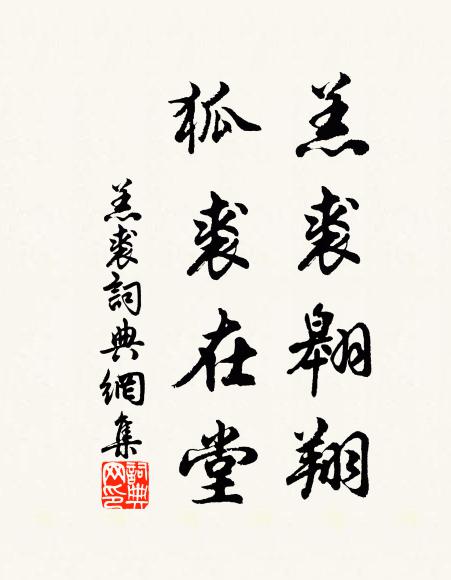 羔裘翱翔
狐裘在堂
羔裘詞典網集
詞典网印